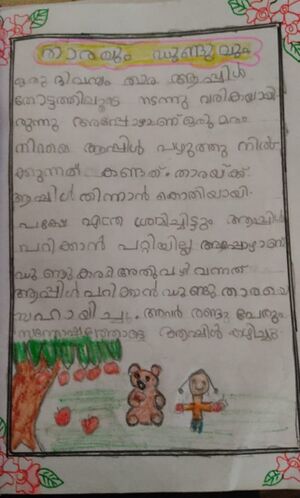 താരയും ഡുണ്ടുവും
ഒരു ദിവസം താര ആപ്പിൾ
തോട്ടത്തിലൂടെ നടന്നു വരികയായി
രുന്നു അപ്പോഴാണ് ഒരു മരം
നിറയെ ആപ്പിൾ പഴുത്തു നിൽ
ക്കുന്നത് കണ്ടത്. താരയ്ക്ക്
ആപ്പിൾ തിന്നാൻ കൊതിയായി.
പക്ഷേ എത്ര ശ്രമിച്ചിട്ടും ആപ്പിൾ
പറിക്കാൻ പറ്റിയില്ല അപ്പോഴാണ്
ഡുണ്ടു കരടി അതുവഴി വന്നത്
ആപ്പിൾ പറിക്കാൻ ഡുണ്ടു താരയെ
സഹായിച്ചു. അവർ രണ്ടു പേരും
സന്തോഷത്തോടെ ആപ്പിൾ കഴിച്ചു.